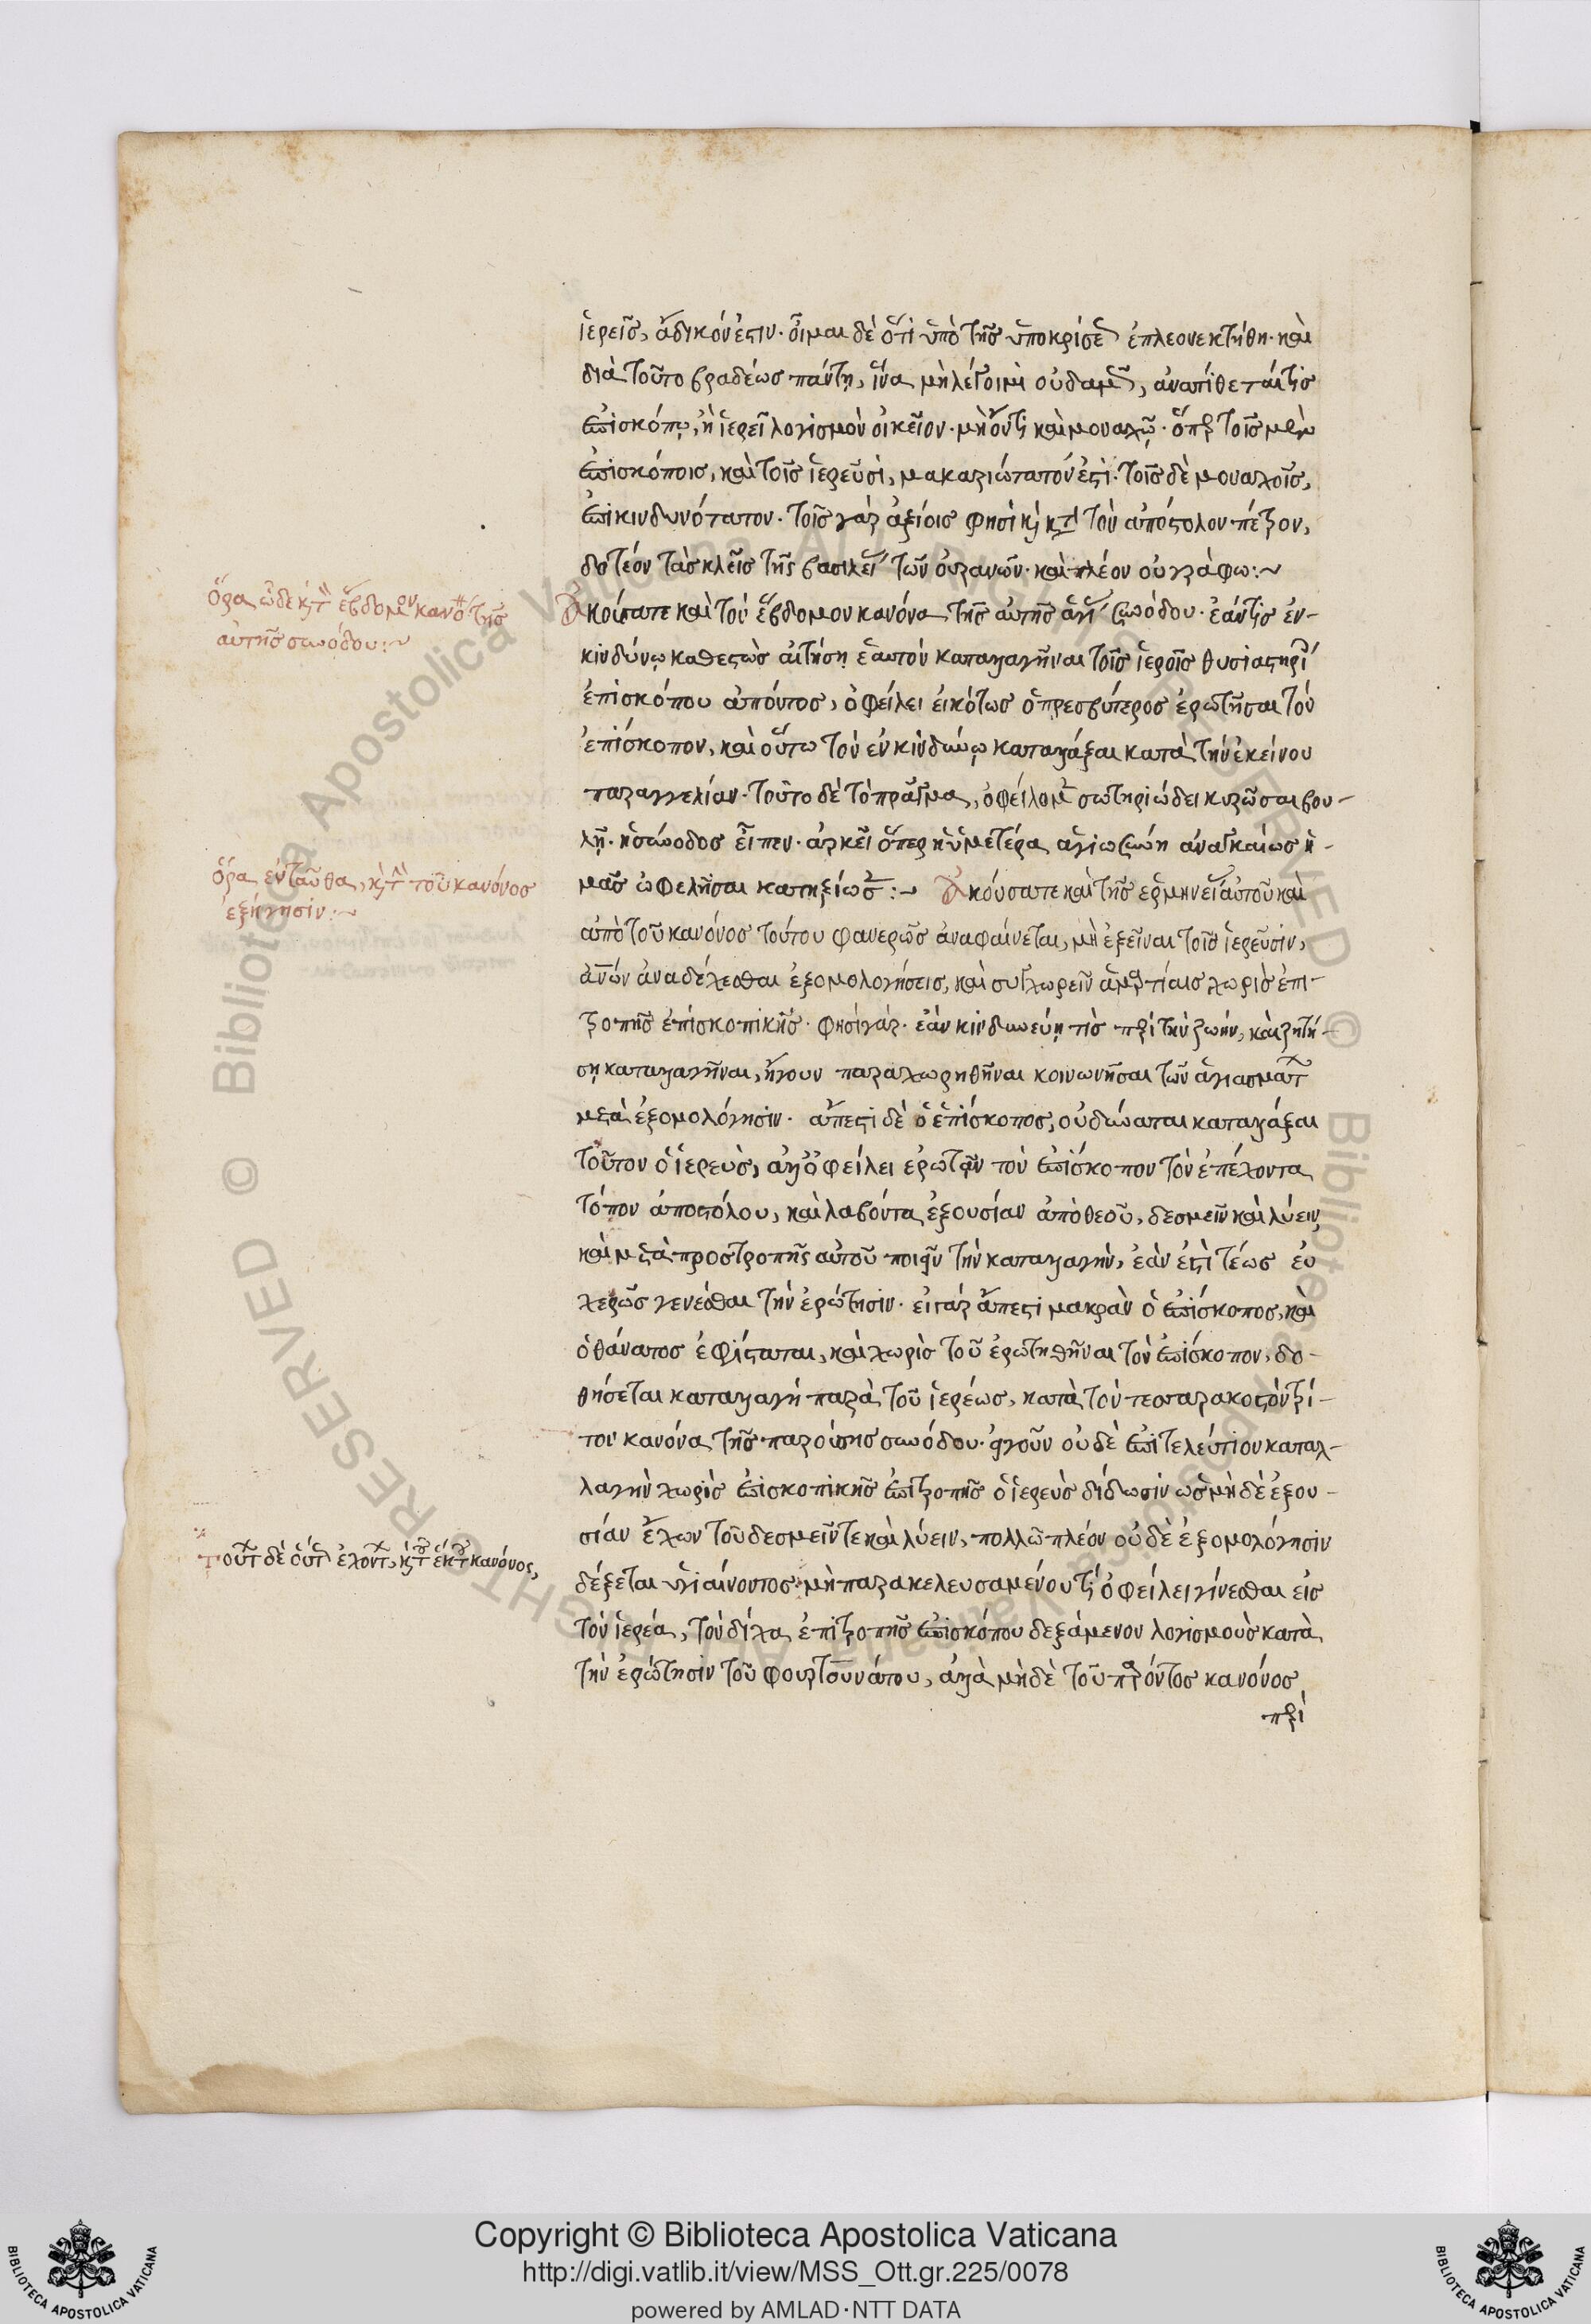 ἱερεῖς, ἄδικόν ἐστιν· οἶμαι δὲ ὅτι ὑπὸ τῆς ὑποκρίσε ἐπλεονεκτήθη· καὶ
διὰ τοῦτο βραδέως πάντη, ἵνα μὴ λέγοιμι οὐδαμ, ἀνατίθεταί τις
ἐπισκόπῳ, ἢ ἱερεῖ λογισμὸν οἰκεῖον· μὴ ὄντι καὶ μοναχῷ· ὅπερ τοῖς μὲν
ἐπισκόποις, καὶ τοῖς ἱερεῦσι, μακαριώτατόν ἐστι· τοῖς δὲ μοναχοῖς,
ἐπικινδυνότατον· τοῖς γὰρ ἀξίοις φησὶ κατὰ τὸν ἀπόστολον πέτρον,
δοτέον τὰς κλεῖς τῆς βασιλεί τῶν οὐρανῶν· καὶ πλέον οὐ γράφω:~
ὅρα ὧδε καὶ τὸν ἕβδομον κανό τῆς
αὐτῆς συνόδου:~
Ἀκούσατε καὶ τὸν ἕβδομον κανόνα τῆς αὐτῆς ἁγί συνόδου· ἐάν τις ἐν-
κινδύνῳ καθεστὼς αἰτήσῃ ἑαυτὸν καταλλαγῆναι τοῖς ἱεροῖς θυσιαστηρί
ἐπισκόπου ἀπόντος, ὀφείλει εἰκότως ὁ πρεσβύτερος ἐρωτῆσαι τὸν
ἐπίσκοπον, καὶ οὕτω τὸν ἐν κινδύνῳ καταλλάξαι κατὰ τὴν ἐκείνου
παραγγελίαν· τοῦτο δὲ τὸ πρᾶγμα, ὀφείλομ σωτηριώδει κυρῶσαι βου-
λῇ· ἡ σύνοδος εἶπεν· ἀρκεῖ ὅπερ ἡ ὑμετέρα ἁγιωσύνη ἀναγκαίως ἡ-
ὅρα ἐνταῦθα, καὶ τὴν τοῦ κανόνος
ἐξήγησιν:~
μᾶς ὠφελῆσαι κατηξίωσ:~ Ἀκούσατε καὶ τῆς ἑρμηνεί αὐτοῦ καὶ
ἀπὸ τοῦ κανόνος τούτου φανερῶς ἀναφαίνεται, μὴ ἐξεῖναι τοῖς ἱερεῦσιν,
ἀνῶν ἀναδέχεσθαι ἐξομολογήσεις, καὶ συγχωρεῖν ἁμαρτίαις χωρὶς ἐπι-
τροπῆς ἐπισκοπικῆς· φησὶ γάρ· ἐὰν κινδυνεύῃ τὶς περὶ τὴν ζωὴν, καὶ ζητή-
σῃ καταλλαγῆναι, ἤγουν παραχωρηθῆναι κοινωνῆσαι τῶν ἁγιασμάτ
μετὰ ἐξομολόγησιν· ἄπεστι δὲ ὁ ἐπίσκοπος, οὐ δύναται καταλλάξαι
τοῦτον ὁ ἱερεὺς, ἀλλ' ὀφείλει ἐρωτᾶν τὸν ἐπίσκοπον τὸν ἐπέχοντα
τόπον ἀποστόλου, καὶ λαβόντα ἐξουσίαν ἀπὸ θεοῦ, δεσμεῖν καὶ λύειν,
καὶ μετὰ προστροπῆς αὐτοῦ ποιεῖν τὴν καταλλαγὴν, ἐὰν ἐστὶ τέως εὐ
χερῶς γενέσθαι τὴν ἐρώτησιν· εἰ γὰρ ἄπεστι μακρὰν ὁ ἐπίσκοπος, καὶ
ὁ θάνατος ἐφίσταται, καὶ χωρὶς τοῦ ἐρωτηθῆναι τὸν ἐπίσκοπον, δο-
θήσεται καταλλαγὴ παρὰ τοῦ ἱερέως, κατὰ τὸν τεσσαρακοστὸν τρί-
τον κανόνα τῆς παρούσης συνόδου· εἰ γοῦν οὐδὲ ἐπιτελεύτιον καταλ-
λαγὴν χωρὶς ἐπισκοπικῆς ἐπιτροπῆς ὁ ἱερεὺς δίδωσιν ὡς μὴ δὲ ἐξου-
τούτ δὲ οὕτ ἐχόντ, κατὰ τοῦ ἕκτου κανόνος,
σίαν ἔχων τοῦ δεσμεῖν τε καὶ λύειν, πολλῷ πλέον οὐδὲ ἐξομολόγησιν
δέξεται ὑγιαίνοντος μὴ παρακελευσαμένου τί ὀφείλει γίνεσθαι εἰς
τὸν ἱερέα, τὸν δίχα ἐπιτροπῆς ἐπισκόπου δεξάμενον λογισμοὺς κατὰ
τὴν ἐρώτησιν τοῦ φουρτουνάτου, ἀλλὰ μὴ δὲ τοῦ παρόντος κανόνος
περὶ
© Biblioteca Apostolica Vaticana ALL RIGHTS RESERVED
Copyright © Biblioteca Apostolica Vaticana
http://digi.vatlib.it/view/MSS_Ott.gr.225/0078
powered by AMLAD·NTT DATA
BIBLIOTECA APOSTOLICA VATICANA
BIBLIOTECA APOSTOLICA VATICANA